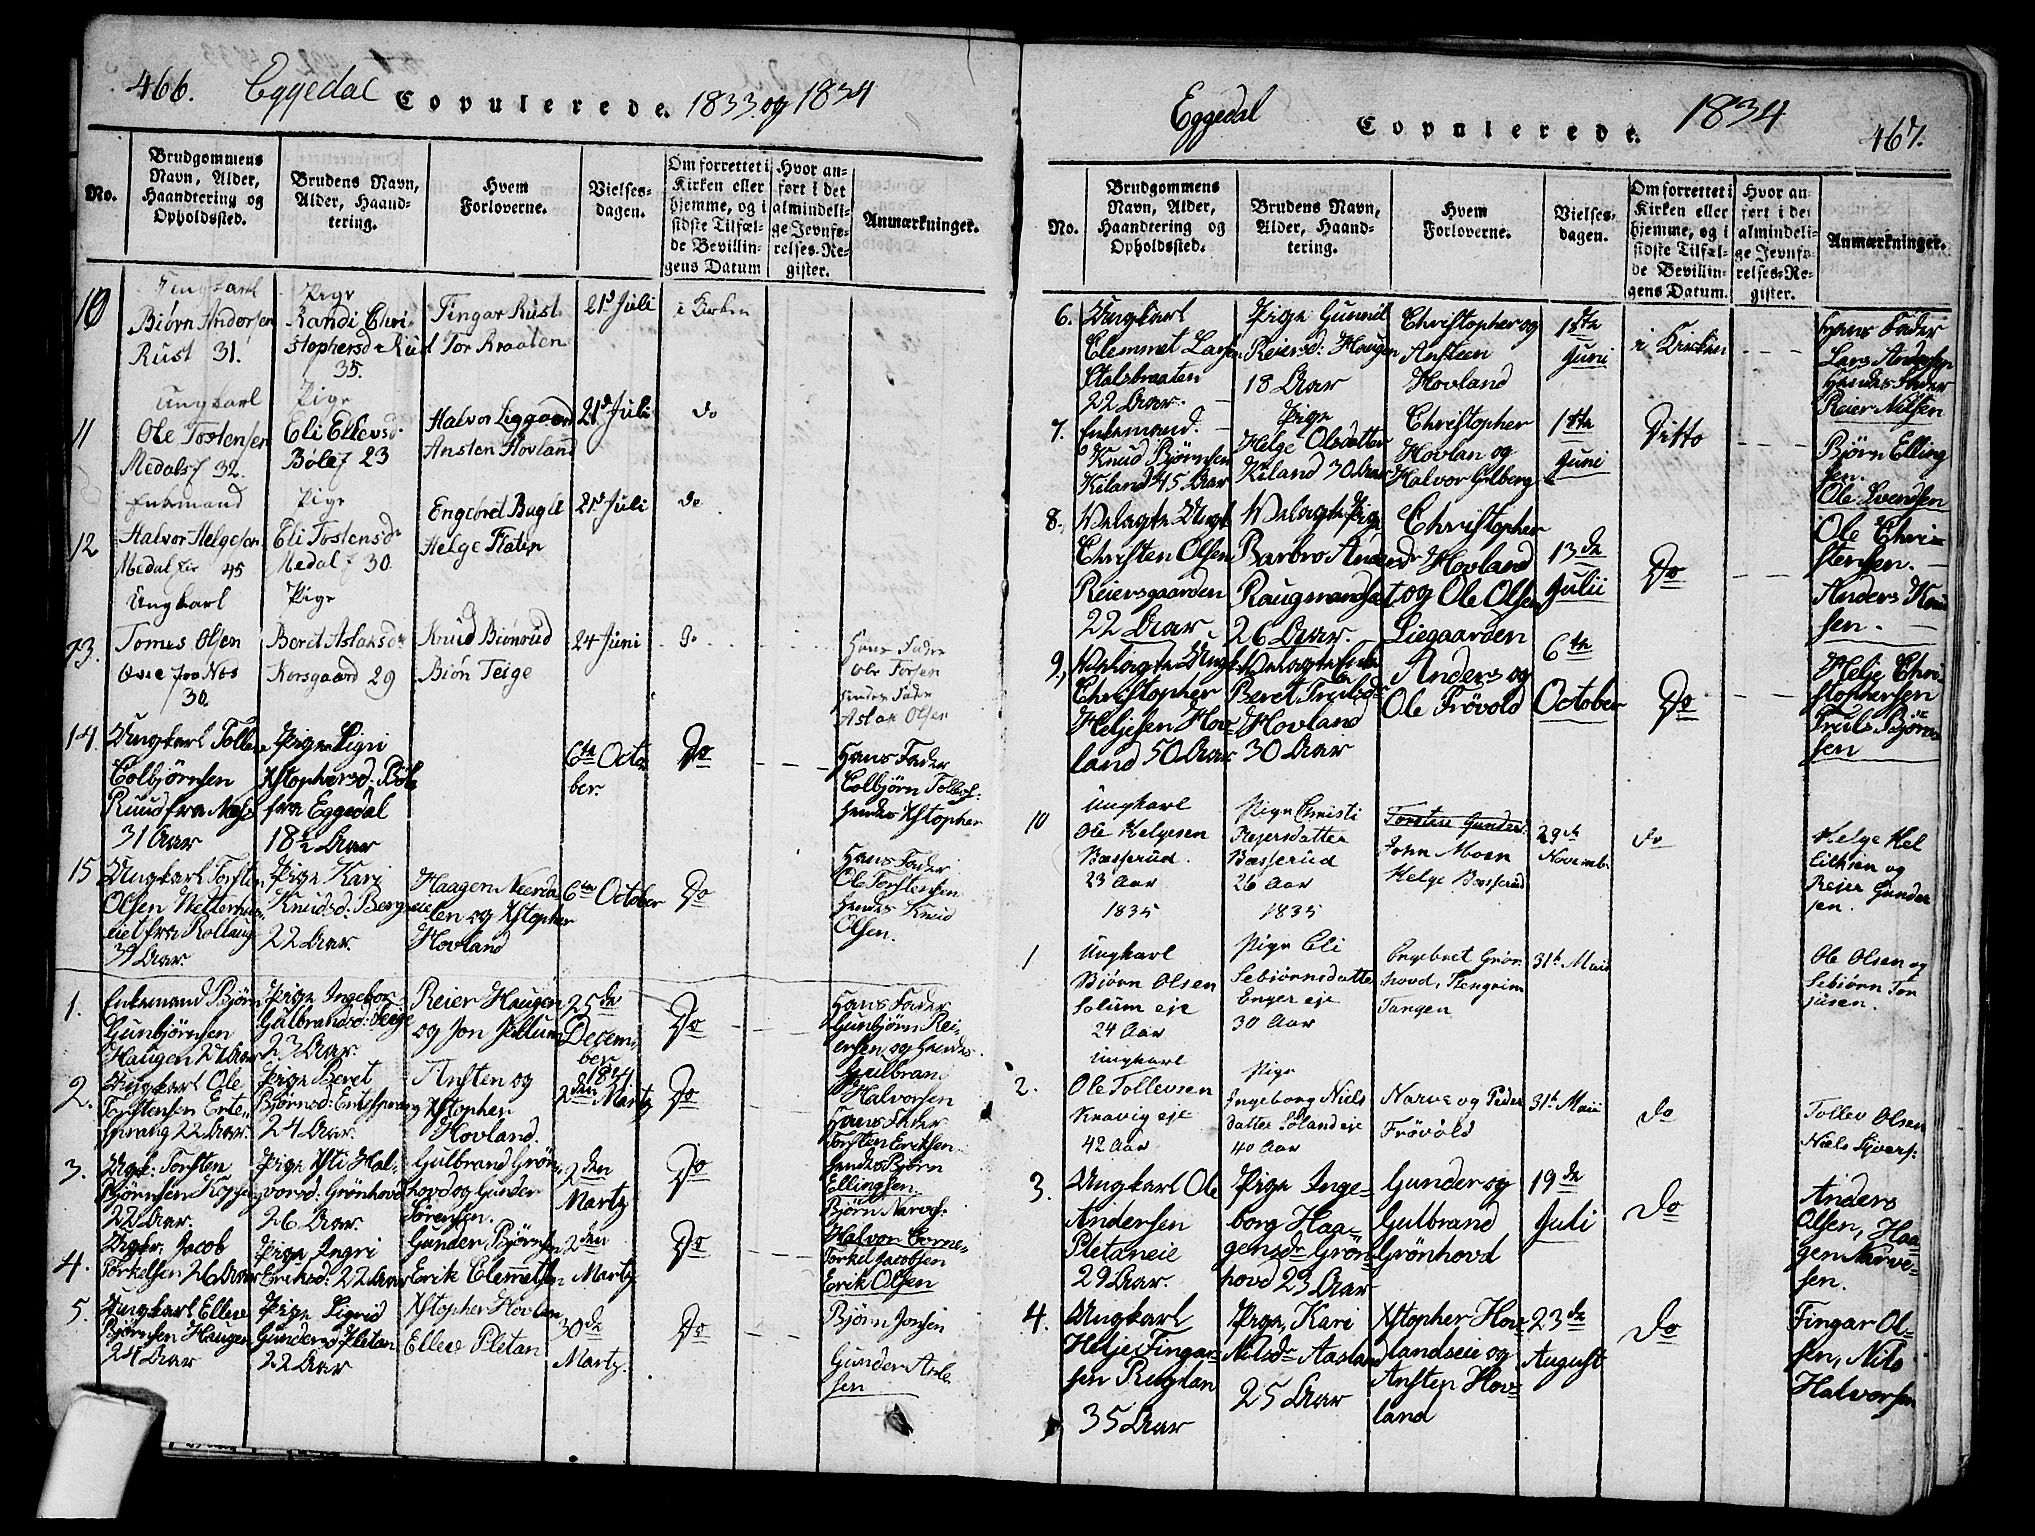 466. Eggedal Copulerede. 1833. og 1834
No.
Brudgommens Navn, Alder, Haandtering og Opholdssted.
Brudens Navn, Alder, Haandtering.
Hvem Forloverne.
Vielsesdagen.
Om forrettet i Kirken eller hjemme, og i sidste Tilfælde Bevillingens Datum
Hvor anført i det almindelige Jevnførelses-Register.
Anmærkninger.
10
Ungkarl
Biørn Andersen
Rust 31.
Pige
Randi Chri-
stophersd Rud
35.
Fingar Rust
Tor Braaten
21d Juli
i Kirken
11
Ungkarl
Ole Tostensen
Medalsf 32.
Pige
Eli Ellevsd.
Bölef 23
Halvor Liggaard
Ansten Hovland
21d Juli
do
12
Enkemand
Halvor Helgesen
Medalsfier 45
Pige
Eli Tostensdr
Medalf 30.
Engebret Bugle
Helge Flaten
21d Juli
do
13.
Ungkarl
Tomes Olsen
fra Nøs
30.
Pige
Beret Aslaksdr
Korsgaard 29
Knud Biönrud
Biön Teige
24 Juni
do
Hans Fader
Ole Torsen
Hendes Fader
Aslak Olsen
14.
Ungkarl Tolle
Colbjørnsen
Ruud fra Næs
31 Aar
Pige Sigri
Xstophersd: Böle
fra Eggedal
18½ Aar
6te Octo
ber.
Do
Hans Fader
Colbjörn Tollefs:
Hendes Xstopher
15
Ungkarl Torsten
Olsen
eiet fra Rollaug
34 Aar.
Pige Kari
Knudsd: Bergseie
22 Aar.
Haagen Neerda
len og Xstopher
Hovland
6te October
Do
Hans Fader
Ole Torstensen
Hendes Knud
Olsen.
1.
Enkemand Bjørn
Gunbjørnsen
Haugen 27 Aar
Pige Ingebor
Gulbrandsd: Teige
23 Aar.
Reier Haugen
og Jon Jellum
25de
Decem-
ber
Do
Hans Fader
Gunbjørn Rei-
ersen, og Hendes
Gulbrand
Halvorsen
2.
Ungkarl Ole
Torstensen Ente-
sprang 22 Aar.
Pige Beret
Bjørnsd: Entesprang
24 Aar.
Ansten og
Xstopher
Hovland.
1834
2den Martz
Do
Hans Fader
Torsten Eriksen
Hendes Bjørn
Ellingsen.
3.
Ungk: Torsten
Bjørnsen Kopseng
22 Aar.
Pige Xsti Hal-
vorsd: Grönhovd
26 Aar.
Gulbrand Grön-
hovd og Gunder
Sørensen.
2den
Martz
Do
Bjørn Narves:
Halvor Corne-
4.
Ungkr. Jacob
Torkelsen 26 Aar
Pige Ingri
Eriksd: 22 Aar
Gunder Bjørnsen
Erik Clemmetsen
2den
Martz
Do
Torkel Jacobsen
Erik Olsen
5.
Ungkarl Ellev
Bjørnsen Haugen
24 Aar
Pige Sigrid
Gundersd Pletan
22 Aar
Xstopher Hovlan
Ellev Pletan
30de
Martz.
Do
Bjørn Jonsen
Gunder Asle-
sen
Eggedal Copulerede. 1834 467.
No.
Brudgommens Navn, Alder, Haandtering og Opholdssted.
Brudens Navn, Alder, Haandtering.
Hvem Forloverne.
Vielsesdagen.
Om forrettet i Kirken eller hjemme, og i sidste Tilfælde Bevillingens Datum.
Hvor anført i det almindelige Jevnførelses-Register.
Anmærkninger.
6.
Ungkarl
Clemmet Larsen
Stalsbraaten
22 Aar.
Pige Gunnil
Reiersd: Haugen
18 Aar
Christopher og
Ansteen
Hovland
1ste
Juni
i Kirken
Hans Fader
Lars Andersen
Hendes Fader
Reier Nilsen
7.
Enkemand.
Knud Bjørnsen
Kiland 45 Aar
Pige
Helge Olsdatter
Kiland 30 Aar
Christopher
Hovlan og
Halvor Gulberg
1ste
Juni
Ditto
Bjørn Elling
sen.
Ole Svendsen
8.
Velagte Ungk
Christen Olsen
Reiersgaarden
22 Aar.
Velagte Pige
Barbro Andersdr
Raugrandsæt
26 Aar.
Christopher
Hovland
og Ole Olsen
Liegaarden
13de
Julii
Do
Ole Chri-
stensen.
Anders Knud
sen.
9.
Velagte Ungk
Christopher
Heljesen Hov-
land 50 Aar
Velagte Enke
Beret Trulsdr
Hovland
30 Aar
Anders og
Ole Frövold
6te
October
Do
Helje Chri-
stophersen
Truls Bjørn-
sen
10
Ungkarl
Ole Helgesen
Bæsserud.
23 Aar
1835
Pige Christi
Reiersdatter
Bæsserud
26 Aar
1835
Torsten Gunders.
John Moen
Helge Bæsserud
29de
Novembr
do
Helge Hel
Eiksen og
Reier Gunder
sen.
1
Ungkarl
Bjørn Olsen
Solum eje
24 Aar
Pige Eli
Sebiörnsdatter
Enger eje
30 Aar
Engebret Grön
hovd, Stengrim
Tangen
31te Mai
Ole Olsen og
Sebiörn Tor
jusen.
2.
Ungkarl
Ole Tollevsen
Kravig eje
42 Aar
Pige
Ingeborg Niels
datter Soland eje
40 Aar
Narve og Peder
Frövold
31te Maii
do
Tollev Olsen
Niels Sjvers:
3.
Ungkarl Ole
Andersen
Pletaneie
29 Aar.
Pige Inge-
borg Haa-
gensdr Grön-
hovd 23 Aar
Gunder og
Gulbrand
Grönhovd
19de
Juli
Do
Anders
Olsen, Haa-
gen Narve-
sen.
4.
Ungkarl
Helje Fingar-
sen Ruglan
35 Aar
Pige, Kari
Nilsdr Aasland
25 Aar
Xstopher Hov-
landseie og
Ansten Hov-
land
23de
August
Do
Fingar Ol-
sen, Nils
Halvorsen